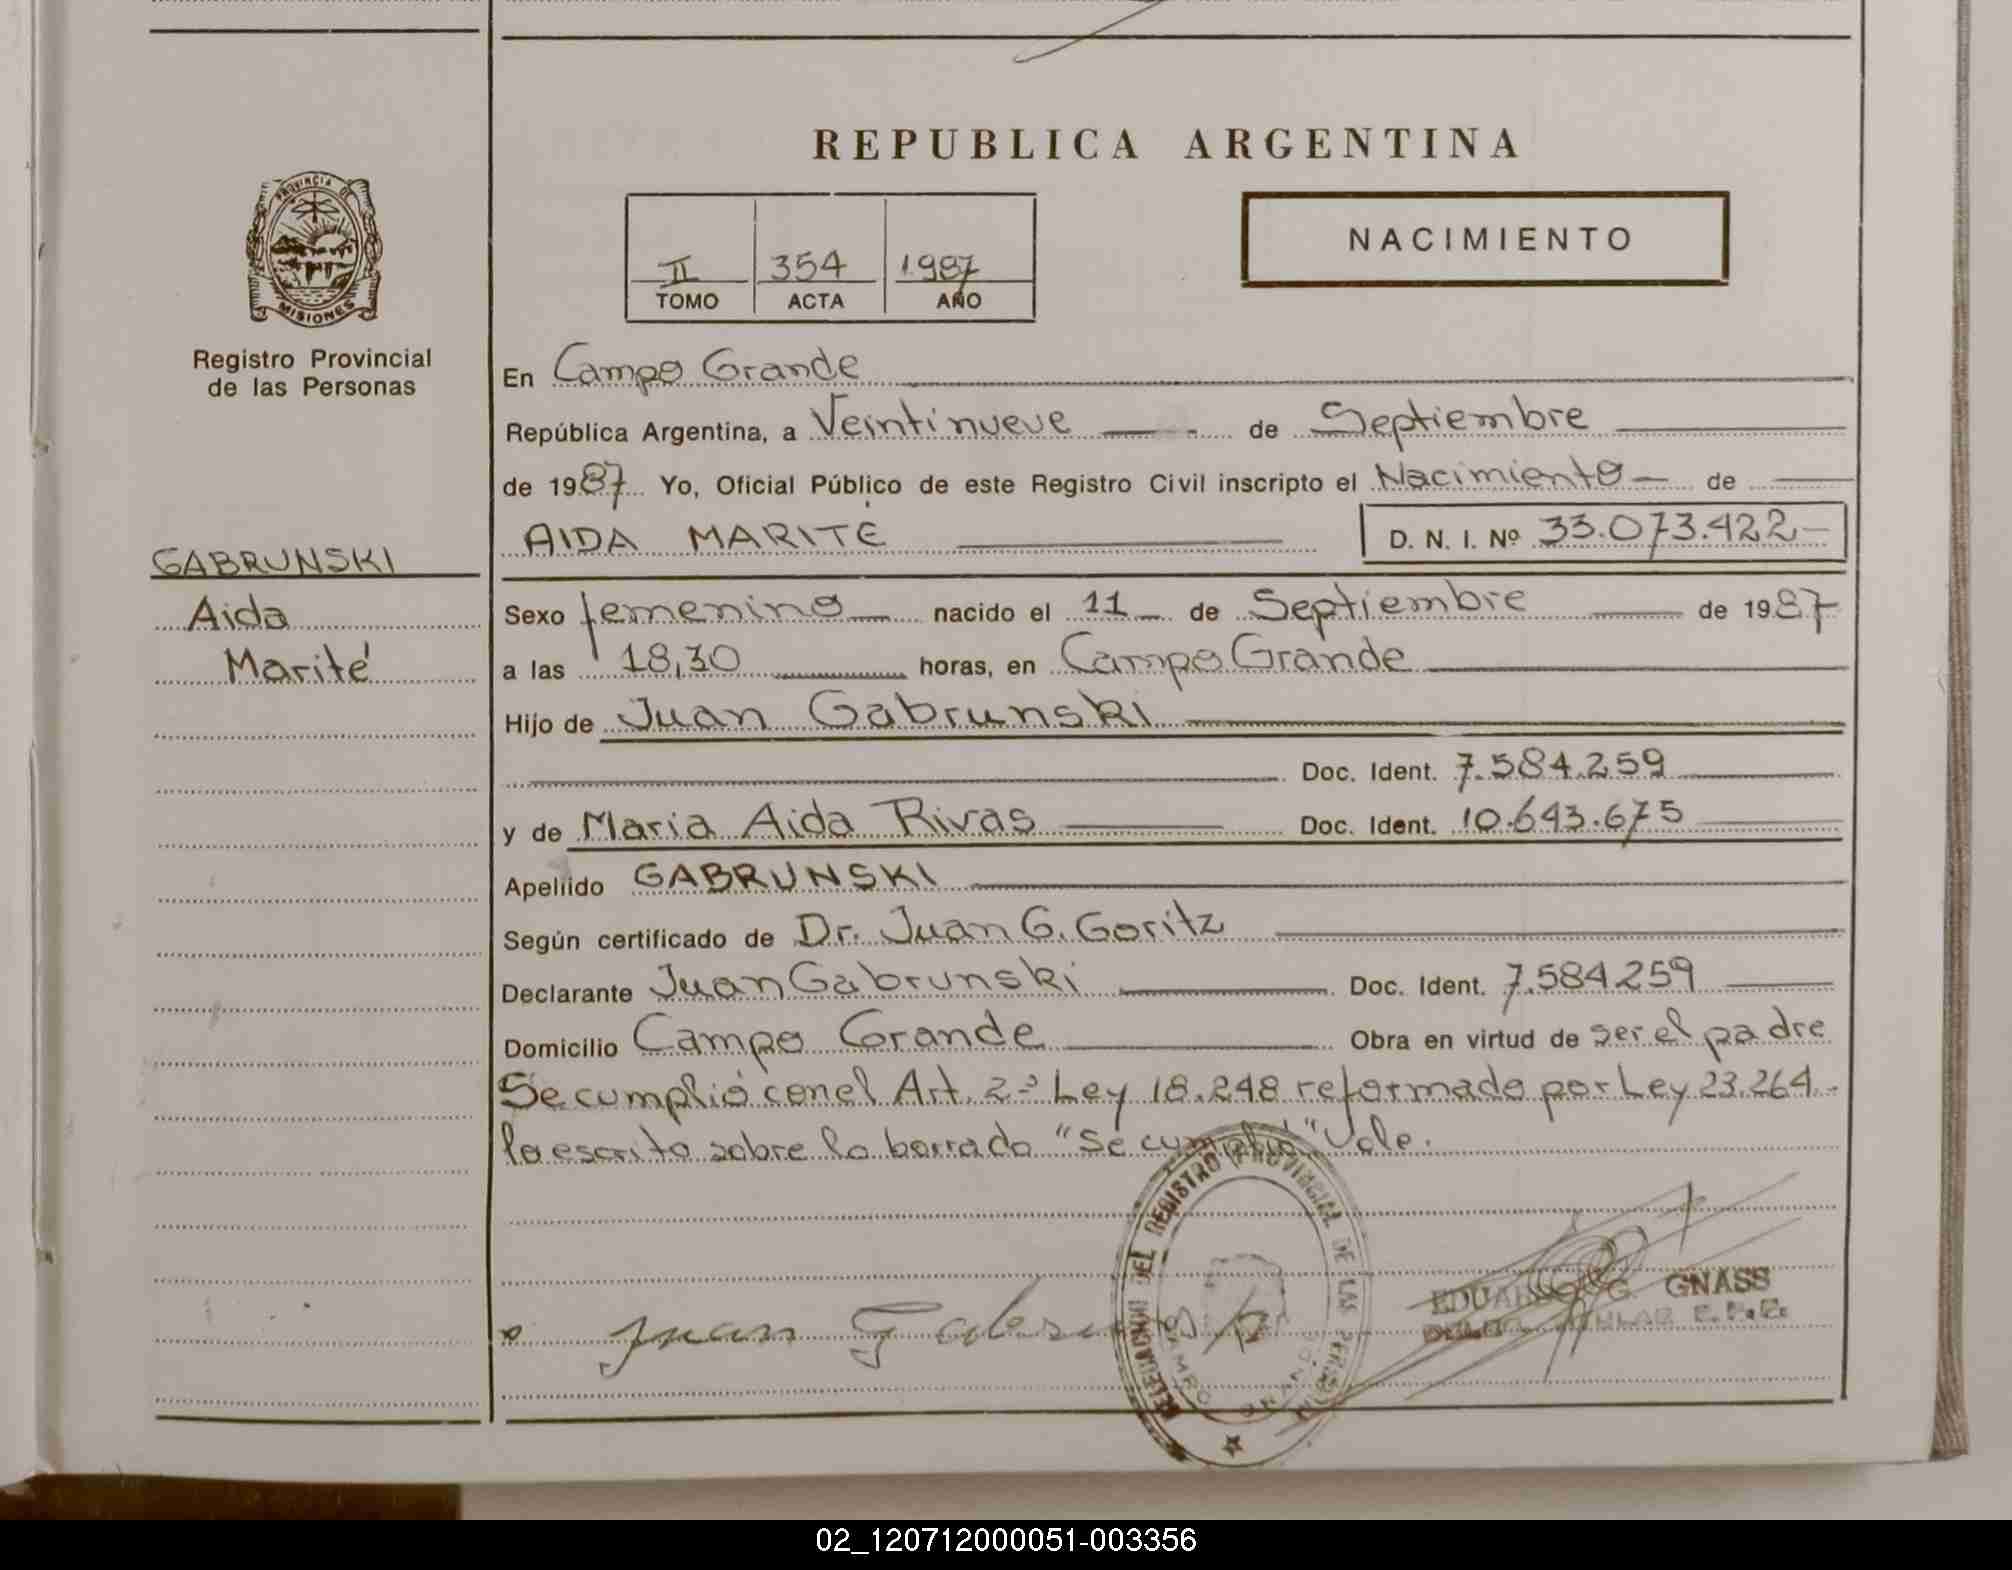 REPUBLICA ARGENTINA
PROVINCIA DE
MISIONES
Registro Provincial
de las Personas
II 354 1987
TOMO ACTA AÑO
NACIMIENTO
En Campo Grande
República Argentina, a Veintinueve de Septiembre
de 1987 Yo, Oficial Público de este Registro Civil inscripto el Nacimiento de
AIDA MARITE D. N. I. Nº 33.073.422
GABRUNSKI
Aida
Marité
Sexo femenino nacido el 11 de Septiembre de 1987
a las 18,30 horas, en Campo Grande
Hijo de Juan Gabrunski
Doc. Ident. 7.584.259
y de Maria Aida Rivas Doc. Ident. 10.643.675
Apellido GABRUNSKI
Según certificado de Dr. Juan G. Goritz
Declarante Juan Gabrunski Doc. Ident. 7.584259
Domicilio Campo Grande Obra en virtud de ser el padre
Se cumplió con el Art. 2º Ley 18.248 reformado por Ley 23.264.-
lo escrito sobre lo borrado "Se cumplió" Vale.
DELEGACION DEL REGISTRO PROVINCIAL DE LAS PERSONAS
CAMPO GRANDE
Juan Gabrunski
EDUARDO G. GNASS
02_120712000051-003356